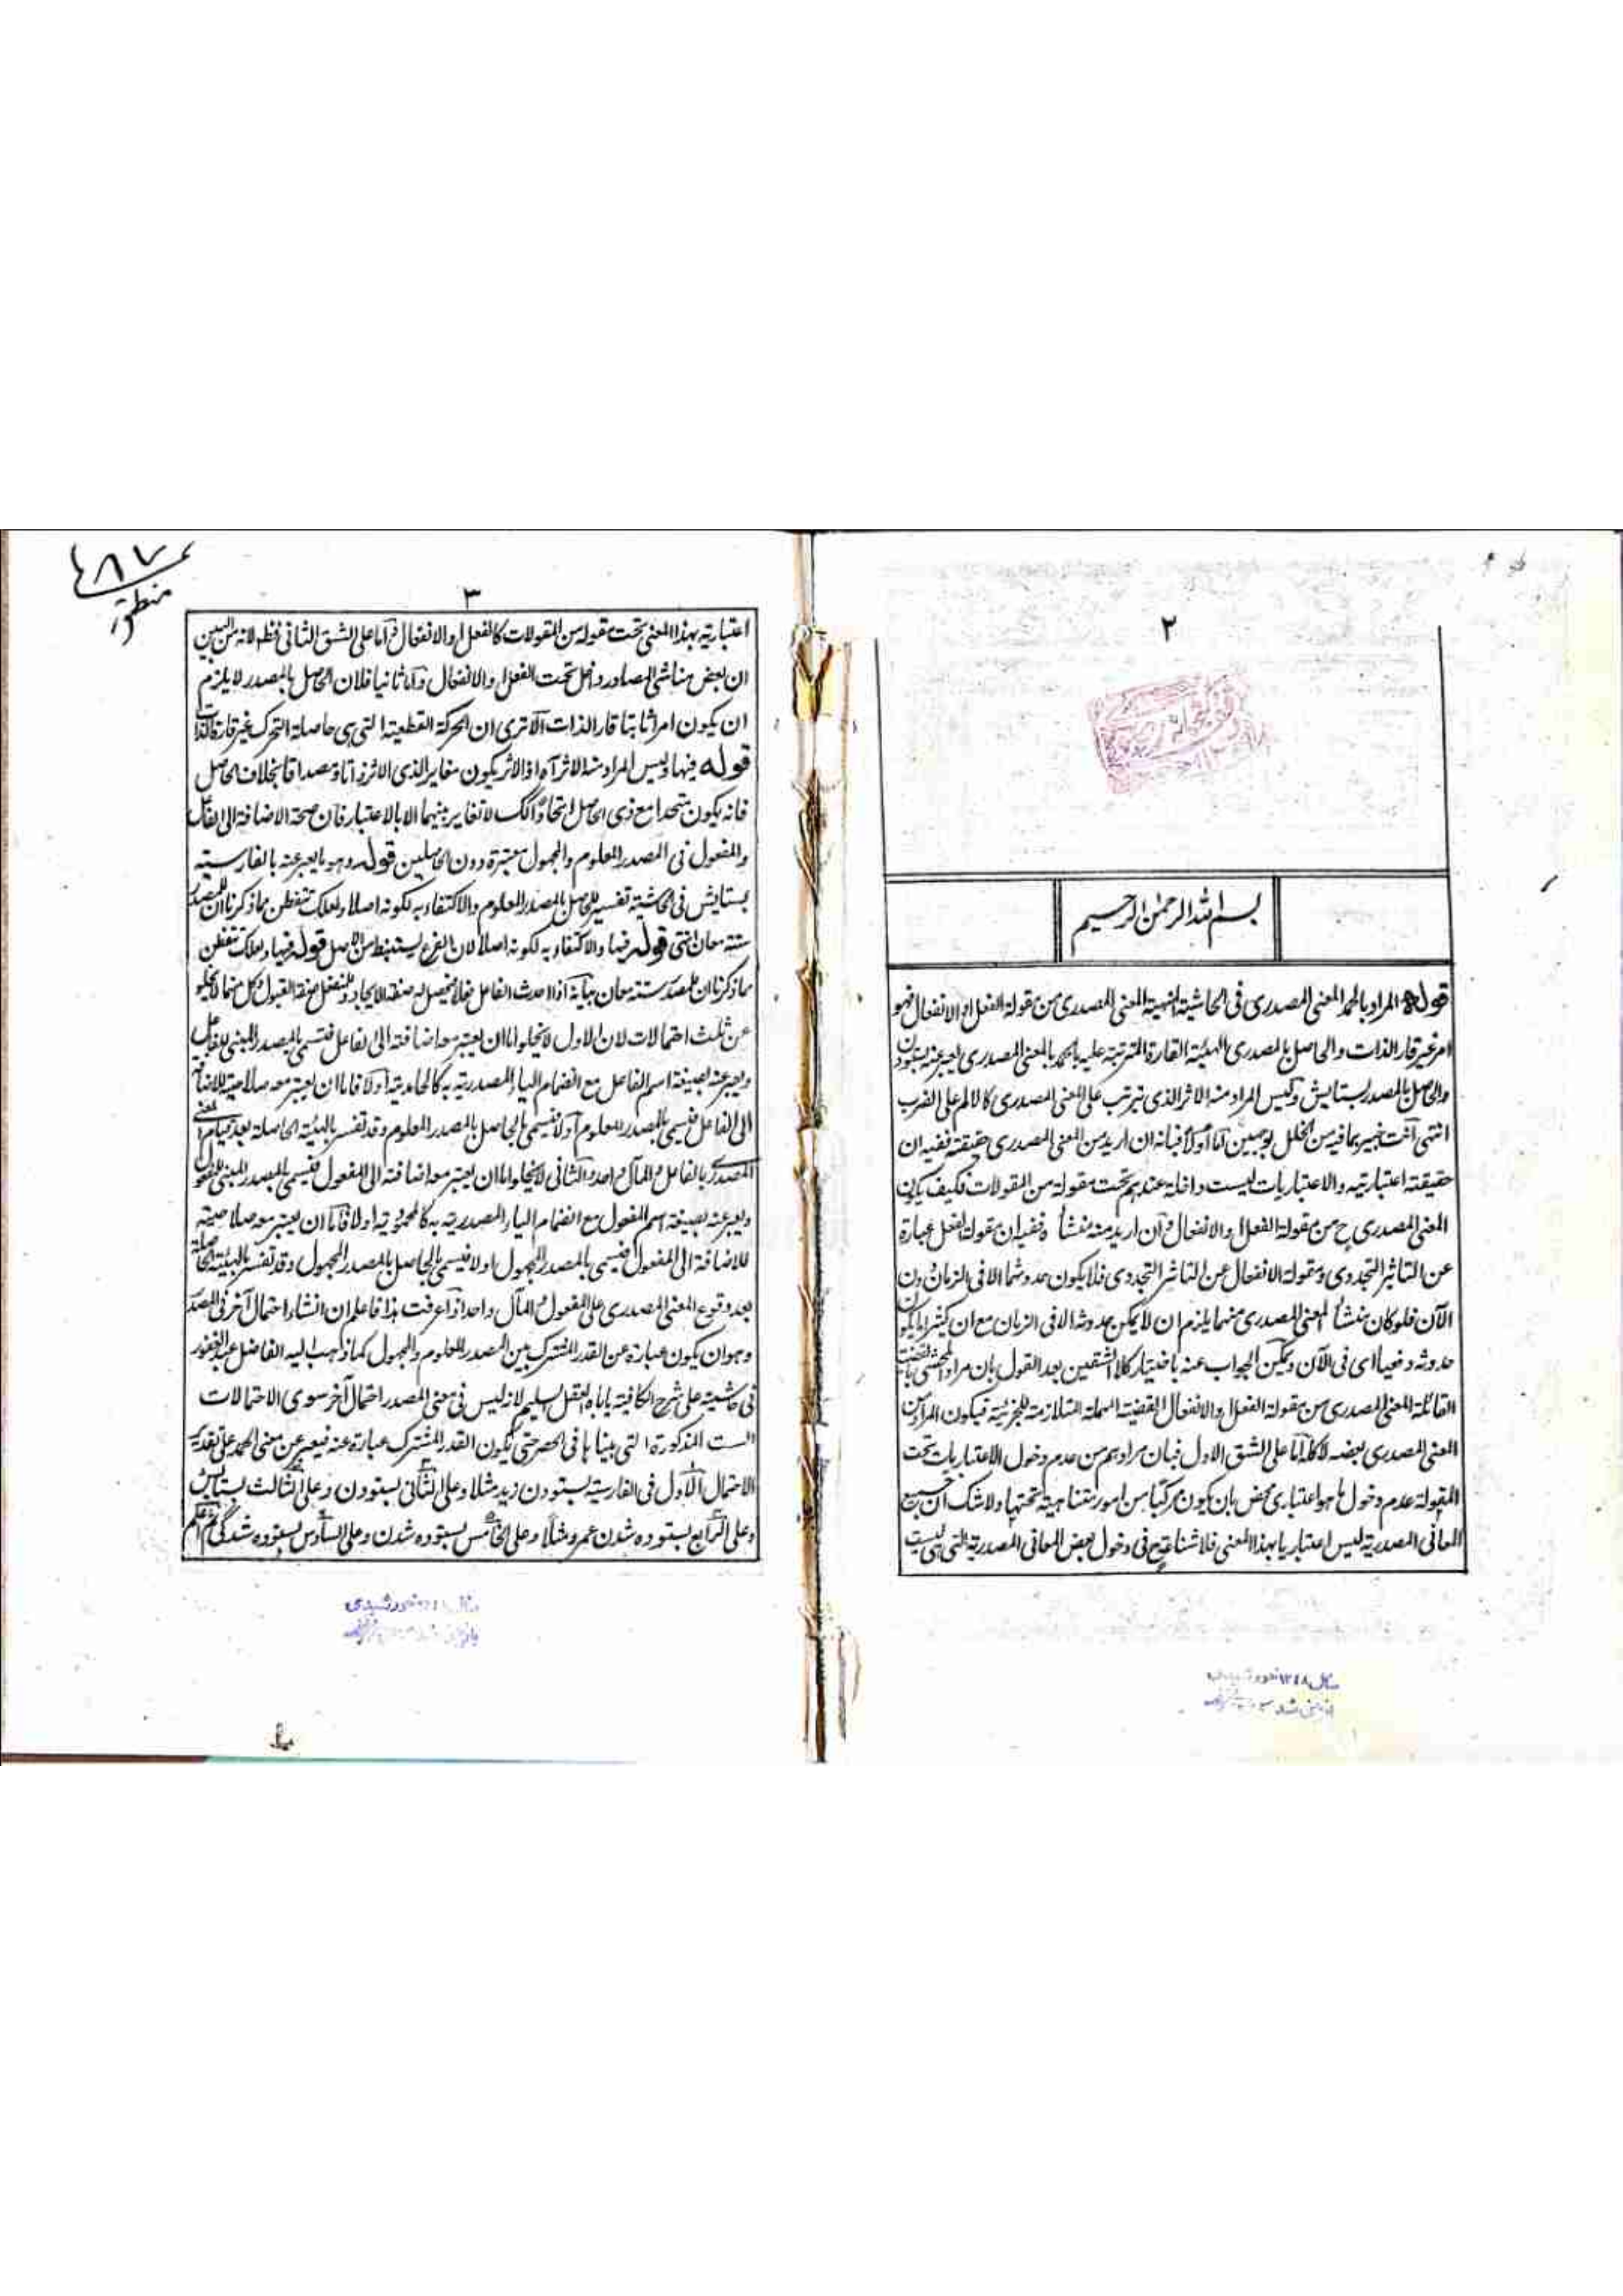 ٢
بسم الله الرحمن الرحيم
قوله المراد بالحمد المعنى المصدرى فى الحاشية المنهية المعنى المصدرى من مقولة الفعل او الانفعال فهو
امر غير قار الذات والحاصل بالمصدر الهيئة القارة المترتبة عليه بالحمد بالمعنى المصدرى يعبر عنه بستودن
والحاصل بالمصدر بستايش وليس المراد منه الاثر الذى يترتب على المعنى المصدرى كالالم على الضرب
انتهى انت خبير بما فيه من الخلل لوجهين اما اولا فبانه ان اريد من المعنى المصدرى حقيقته ففيه ان
حقيقته اعتبارية والاعتباريات ليست داخلة عندهم تحت مقولة من المقولات فكيف يكون
المعنى المصدرى ح من مقولة الفعل او الانفعال وان اريد منه منشأه ففيه ان مقولة الفعل عبارة
عن التاثير التجددى ومقولة الانفعال عن التاثر التجددى فلا يكون حدوثهما الا فى الزمان دون
الآن فلو كان منشأ المعنى المصدرى منهما يلزم ان لا يمكن حدوثه الا فى الزمان مع ان كثيرا ما يكون
حدوثه دفعيا اى فى الآن ويمكن الجواب عنه باختيار كلا الشقين بعد القول بان مراد المحشى بالقضية
القائلة المعنى المصدرى من مقولة الفعل او الانفعال القضية المهملة المتلازمة للجزئية فيكون المراد من
المعنى المصدرى بعضه لا كله اما على الشق الاول فبان مرادهم من عدم دخول الاعتباريات تحت
المقولة عدم دخول ما هو اعتبارى محض بان يكون مركبا من امور متناهية تحتها ولا شك ان جميع
المعانى المصدرية ليس اعتباريا بهذا المعنى فلا شناعة فى دخول بعض المعانى المصدرية التى ليست
سال ١٣٤٨ خورشيدى
٣
اعتبارية بهذا المعنى تحت مقولة من المقولات كالفعل او الانفعال واما على الشق الثانى فظ لانه من البين
ان بعض مناشى المصادر داخل تحت الفعل او الانفعال واما ثانيا فلان الحاصل بالمصدر لا يلزم
ان يكون امرا ثابتا قار الذات الا ترى ان الحركة القطعية التى هى حاصلة التحرك غير قارة الذات
قوله فيها وليس المراد منه الاثر آه اذ الاثر يكون مغاير الذى الاثر ذاتا ومصداقا بخلاف الحاصل
فانه يكون متحدا مع ذى الحاصل اتحادا لا تغاير بينهما الا بالاعتبار فان صحة الاضافة الى الفاعل
والمفعول فى المصدر المعلوم والمجهول معتبرة دون الحاصلين قوله وهو ما يعبر عنه بالفارسية
بستايش فى الحاشية تفسير للحاصل بالمصدر المعلوم والاكتفاء به لكونه اصلا ولعلك تتفطن مما ذكرنا ان للمصدر
ستة معان انتهى قوله فيها والاكتفاء به لكونه اصلا لان الفرع يستنبط من الاصل قوله فيها ولعلك تتفطن
مما ذكرنا ان للمصدر ستة معان بيانه اذا احدث الفاعل فعلا يحصل له صفة الايجاد وللمنفعل صفة القبول وكل منهما لا يخلو
عن ثلث احتمالات لان الاول لا يخلو اما ان يعتبر معه اضافته الى الفاعل فتسمى بالمصدر المبنى للفاعل
ويعبر عنه بصيغة اسم الفاعل مع انضمام الياء المصدرية به كالحامدية او لا فاما ان يعتبر معه صلاحية للاضافة
الى الفاعل فيسمى بالمصدر المعلوم او لا فيسمى بالحاصل بالمصدر المعلوم وقد تفسر بالهيئة الحاصلة بعد قيام المعنى
المصدرى بالفاعل والمآل واحد والثانى لا يخلو اما ان يعتبر معه اضافته الى المفعول فيسمى بالمصدر المبنى للمفعول
ويعبر عنه بصيغة اسم المفعول مع انضمام الياء المصدرية به كالمحمودية او لا فاما ان يعتبر معه صلاحية
للاضافة الى المفعول فيسمى بالمصدر المجهول او لا فيسمى بالحاصل بالمصدر المجهول وقد تفسر بالهيئة الحاصلة
بعد وقوع المعنى المصدرى على المفعول والمآل واحد اذا عرفت هذا فاعلم ان انشاء احتمال آخر فى المصدر
وهو ان يكون عبارة عن القدر المشترك بين المصدر المعلوم والمجهول كما ذهب اليه الفاضل عبد الغفور
فى حاشيته على شرح الكافية ياباه العقل السليم لانه ليس فى معنى المصدر احتمال آخر سوى الاحتمالات
الست المذكورة التى بيناها فى الحصر حتى يكون القدر المشترك عبارة عنه فيعبر عن معنى الحمد على تقدير
الاحتمال الاول فى الفارسية بستودن زيد مثلا وعلى الثانى بستودن وعلى الثالث بستايش
وعلى الرابع بستوده شدن عمرو مثلا وعلى الخامس بستوده شدن وعلى السادس بستوده شدگى
منطق